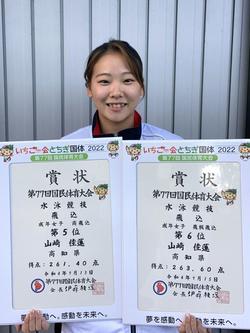 いちご一会とちぎ国体 2022
第77回 国民体育大会
賞状
第77回国民体育大会
水泳競技
飛込
成年女子 高飛込
第5位
山崎 佳蓮
高知県
得点：261.40点
令和4年9月13日
第77回国民体育大会
会長 伊藤雅俊
夢を、感動を、未来へ。
いちご一会とちぎ国体 2022
第77回 国民体育大会
賞状
第77回国民体育大会
水泳競技
飛込
成年女子 飛板飛込
第6位
山崎 佳蓮
高知県
得点：263.60点
令和4年9月15日
第77回国民体育大会
会長 伊藤雅俊
夢を感動を未来へ。